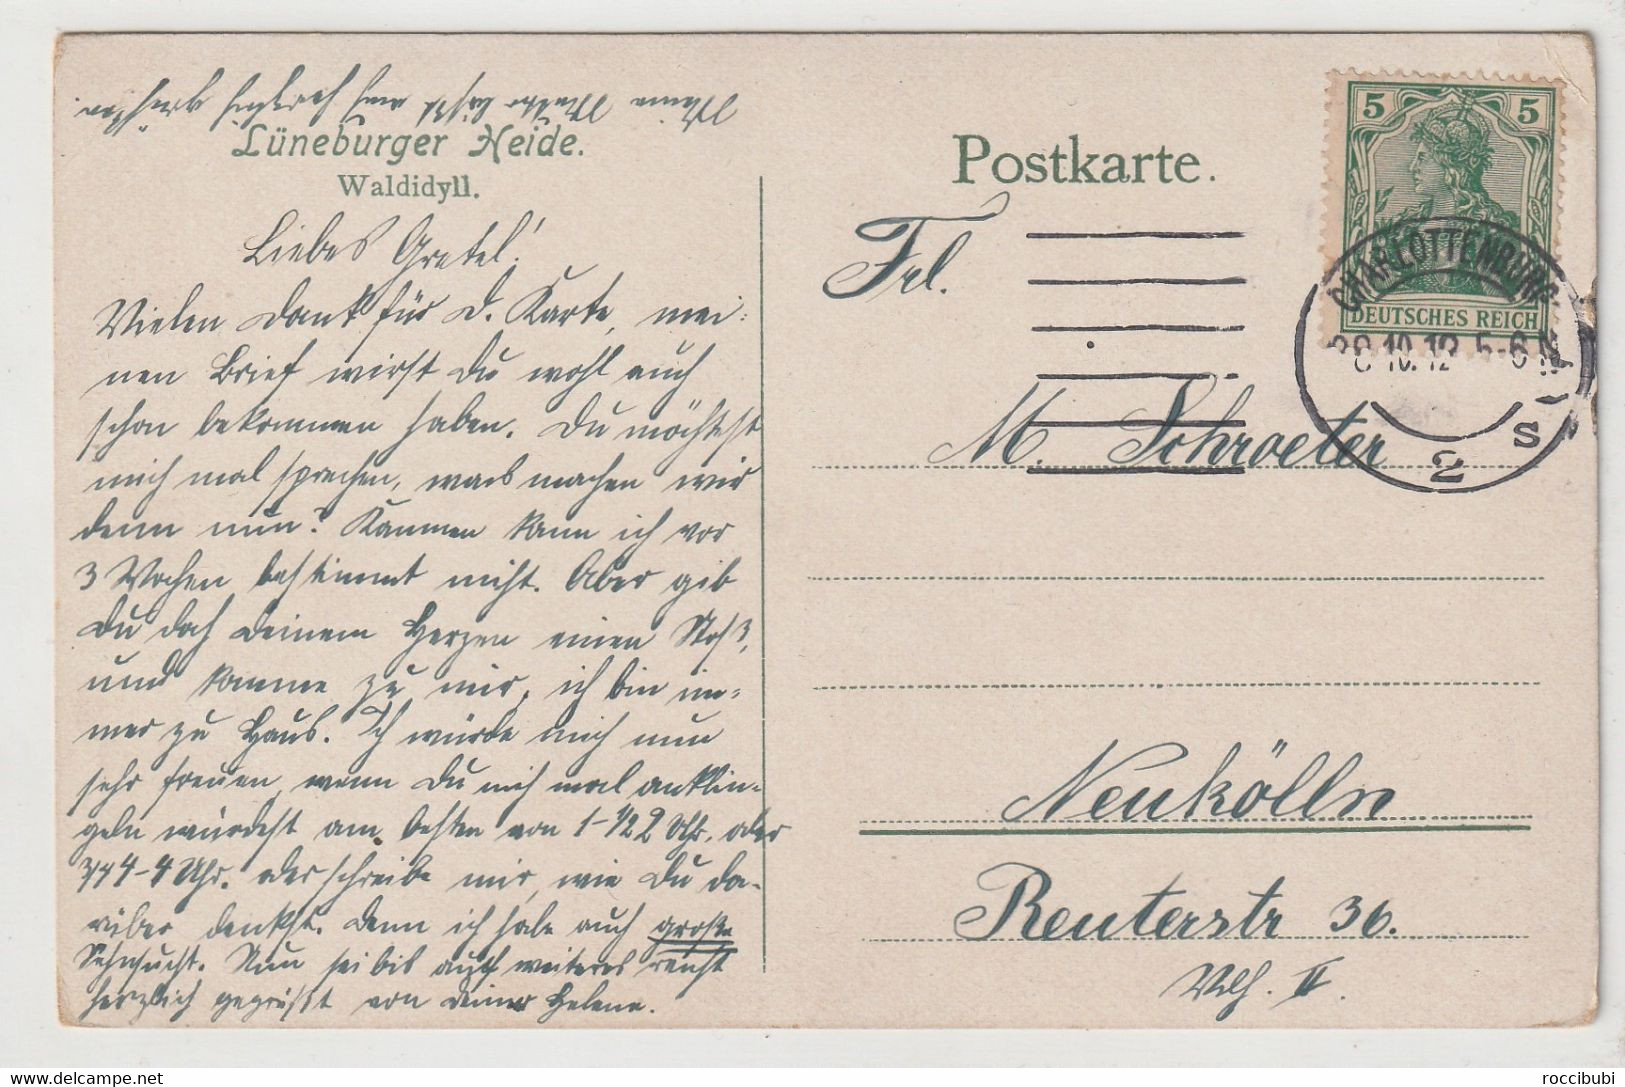 Meine Mutter läßt auch herzlich grüßen.
Lüneburger Heide.
Waldidyll.
Liebes Gretel!
Vielen Dank für d. Karte, mei-
nen Brief wirst Du wohl auch
schon bekommen haben. Du möchtest
mich mal sprechen, was machen wir
denn nun? Kommen kann ich vor
3 Wochen bestimmt nicht. Aber gib
Du doch Deinem Herzen einen Stoß,
und komme zu mir, ich bin im-
mer zu Haus. Ich würde mich nun
sehr freuen, wenn Du mich mal anklin-
geln würdest am besten von 1-1/2 2 Uhr, oder
3/4 4-4 Uhr. oder schreibe mir, wie Du da-
rüber denkst. Denn ich habe auch große
Sehnsucht. Nun sei bis auf weiteres recht
herzlich gegrüßt von Deiner Helene.
Postkarte.
Frl.
M. Schroeter
Neukölln
Reuterstr 36.
II.
5 5
DEUTSCHES REICH
CHARLOTTENBURG
10.12 5-6 N
2 s
roccibubi